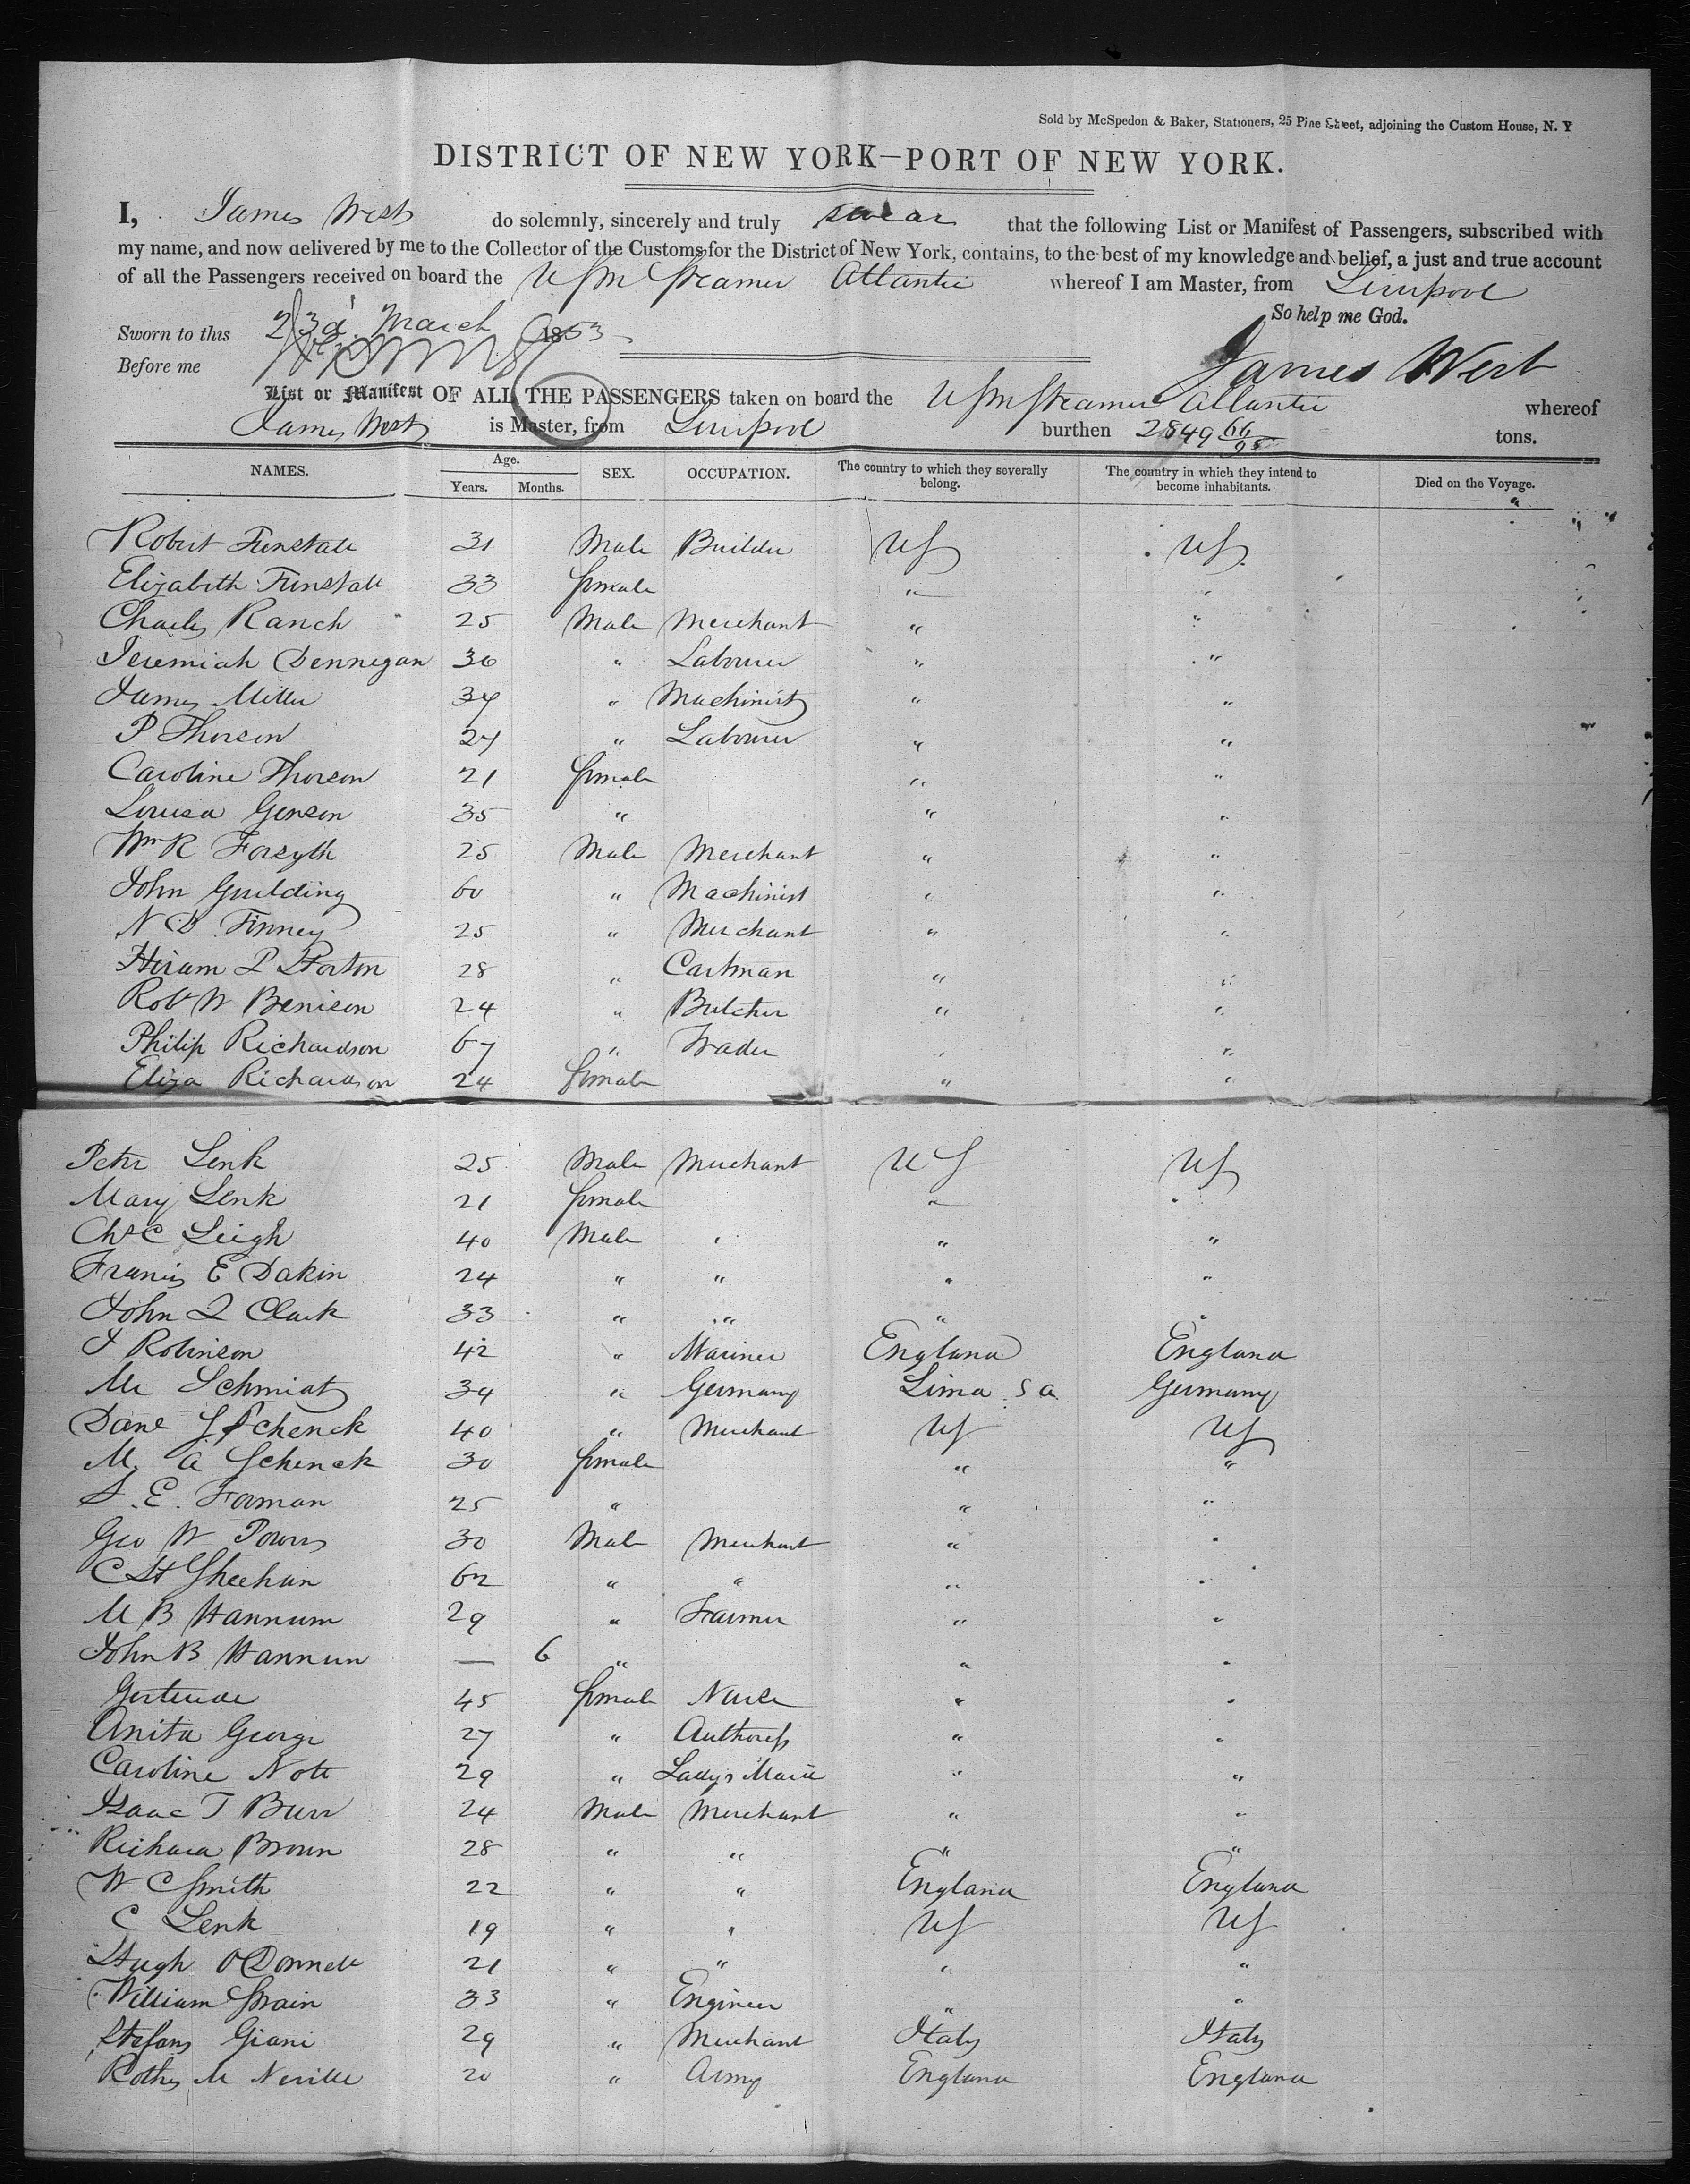 Sold by McSpedon & Baker, Stationers, 25 Pine Street, adjoining the Custom House, N. Y
DISTRICT OF NEW YORK—PORT OF NEW YORK.
I, James West do solemnly, sincerely and truly swear that the following List or Manifest of Passengers, subscribed with
my name, and now delivered by me to the Collector of the Customs for the District of New York, contains, to the best of my knowledge and belief, a just and true account
of all the Passengers received on board the USM Steamer Atlantic whereof I am Master, from Liverpool
So help me God.
Sworn to this 23d March 1853
Before me
James West
List or Manifest OF ALL THE PASSENGERS taken on board the USM Steamer Atlantic whereof
James West is Master, from Liverpool burthen 2849 66/95 tons.
NAMES. Age. Years. Months. SEX. OCCUPATION. The country to which they severally belong. The country in which they intend to become inhabitants. Died on the Voyage.
Robert Tunstall 31 Male Builder US US
Elizabeth Tunstall 33 female " "
Charles Ranch 25 Male Merchant " "
Jeremiah Dennegan 36 " Labourer " "
James Miller 34 " Machinist " "
P Thorson 27 " Labourer " "
Caroline Thorson 21 female " "
Louisa Genson 35 " " "
Wm R Forsyth 25 Male Merchant " "
John Goulding 60 " Machinist " "
N D Finney 25 " Merchant " "
Hiram P Storton 28 " Cartman " "
Robt W Benison 24 " Butcher " "
Philip Richardson 67 " Trader " "
Eliza Richardson 24 female " "
Peter Lenk 25 Male Merchant US US
Mary Lenk 21 female " "
Chs C Leigh 40 Male " " "
Francis E Dakin 24 " " " "
John L Clark 33 " " " "
J Robinson 42 " Mariner England England
Mr Schmidt 34 " Germany Lima S a Germany
Danl S Schenck 40 " Merchant US US
M. A Schenck 30 female " "
S. E. Forman 25 " " "
Geo W Powers 30 Male Merchant " "
C St Sheehan 62 " " " "
M B Hannum 29 " Farmer " "
John B Hannum — 6 " " "
Gertrude 45 female Nurse " "
Anita George 27 " Authoress " "
Caroline Nott 29 " Lady's Maid " "
Isaac T Burr 24 Male Merchant " "
Richard Brown 28 " " " "
W C Smith 22 " " England England
C Lenk 19 " " US US
Hugh O'Donnell 21 " " " "
William Swain 33 " Engineer " "
Stefano Giani 29 " Merchant Italy Italy
Rothes M Neville 20 " Army England England